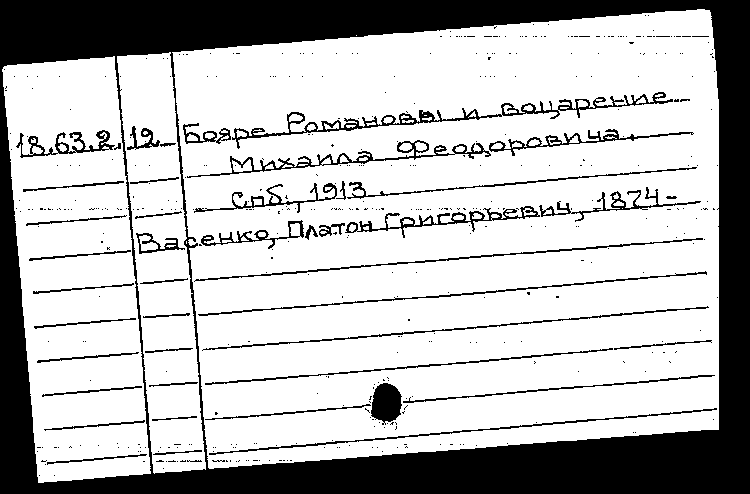 18.63.2.12 Бояре Романовы и воцарение
Михаила Феодоровича.
Спб., 1913.
Васенко, Платон Григорьевич, 1874-